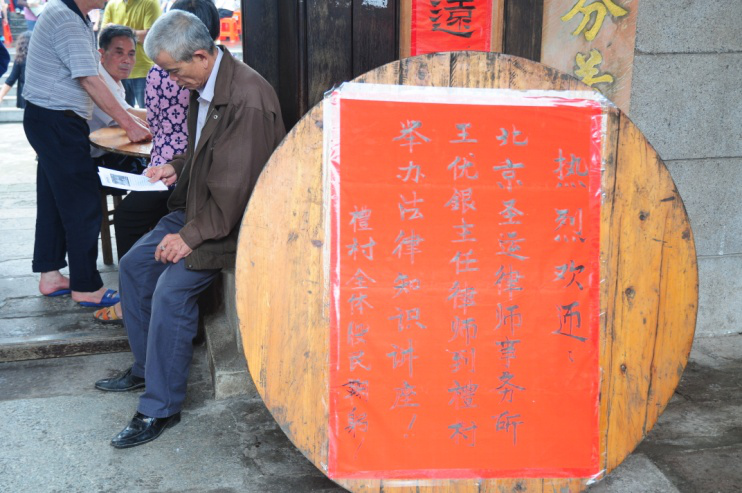 遠
芬
热烈欢迎：
北京圣运律师事务所
王优银主任律师到禮村
举办法律知识讲座！
禮村全体民